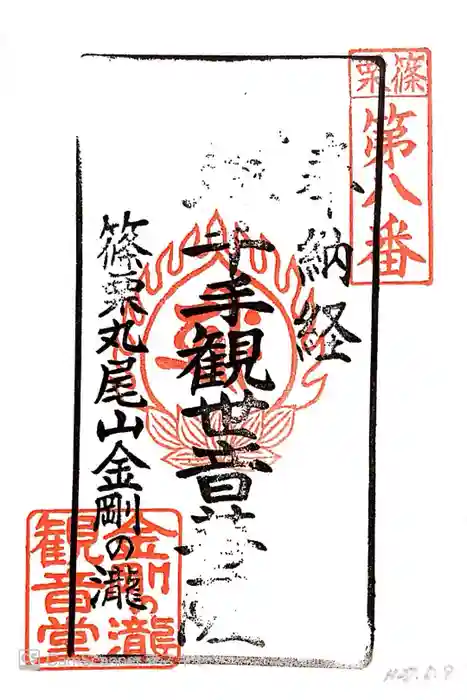 篠栗
第八番
奉納経
千手観世音菩薩
篠栗丸尾山金剛の瀧
金剛の瀧
観音堂